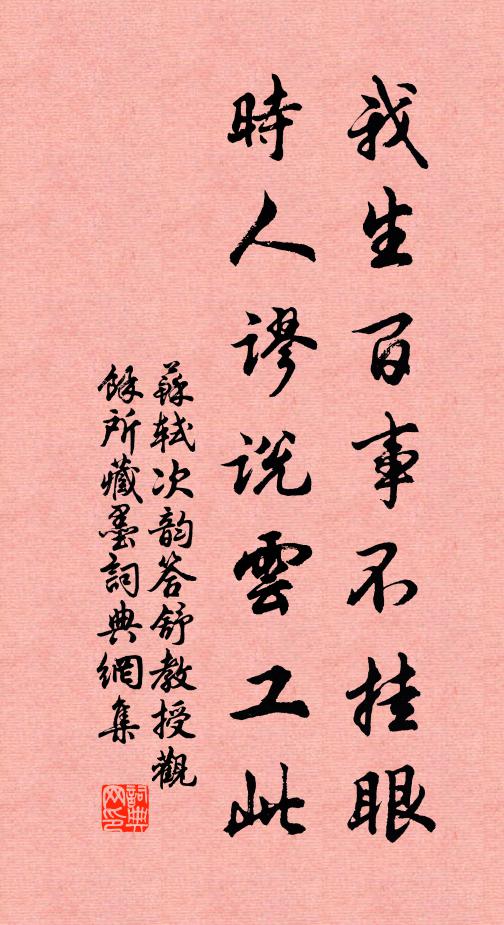 我生百事不挂眼
時人謬說雲工此
蘇軾次韵答舒教授觀
餘所藏墨詞典網集
詞典网印